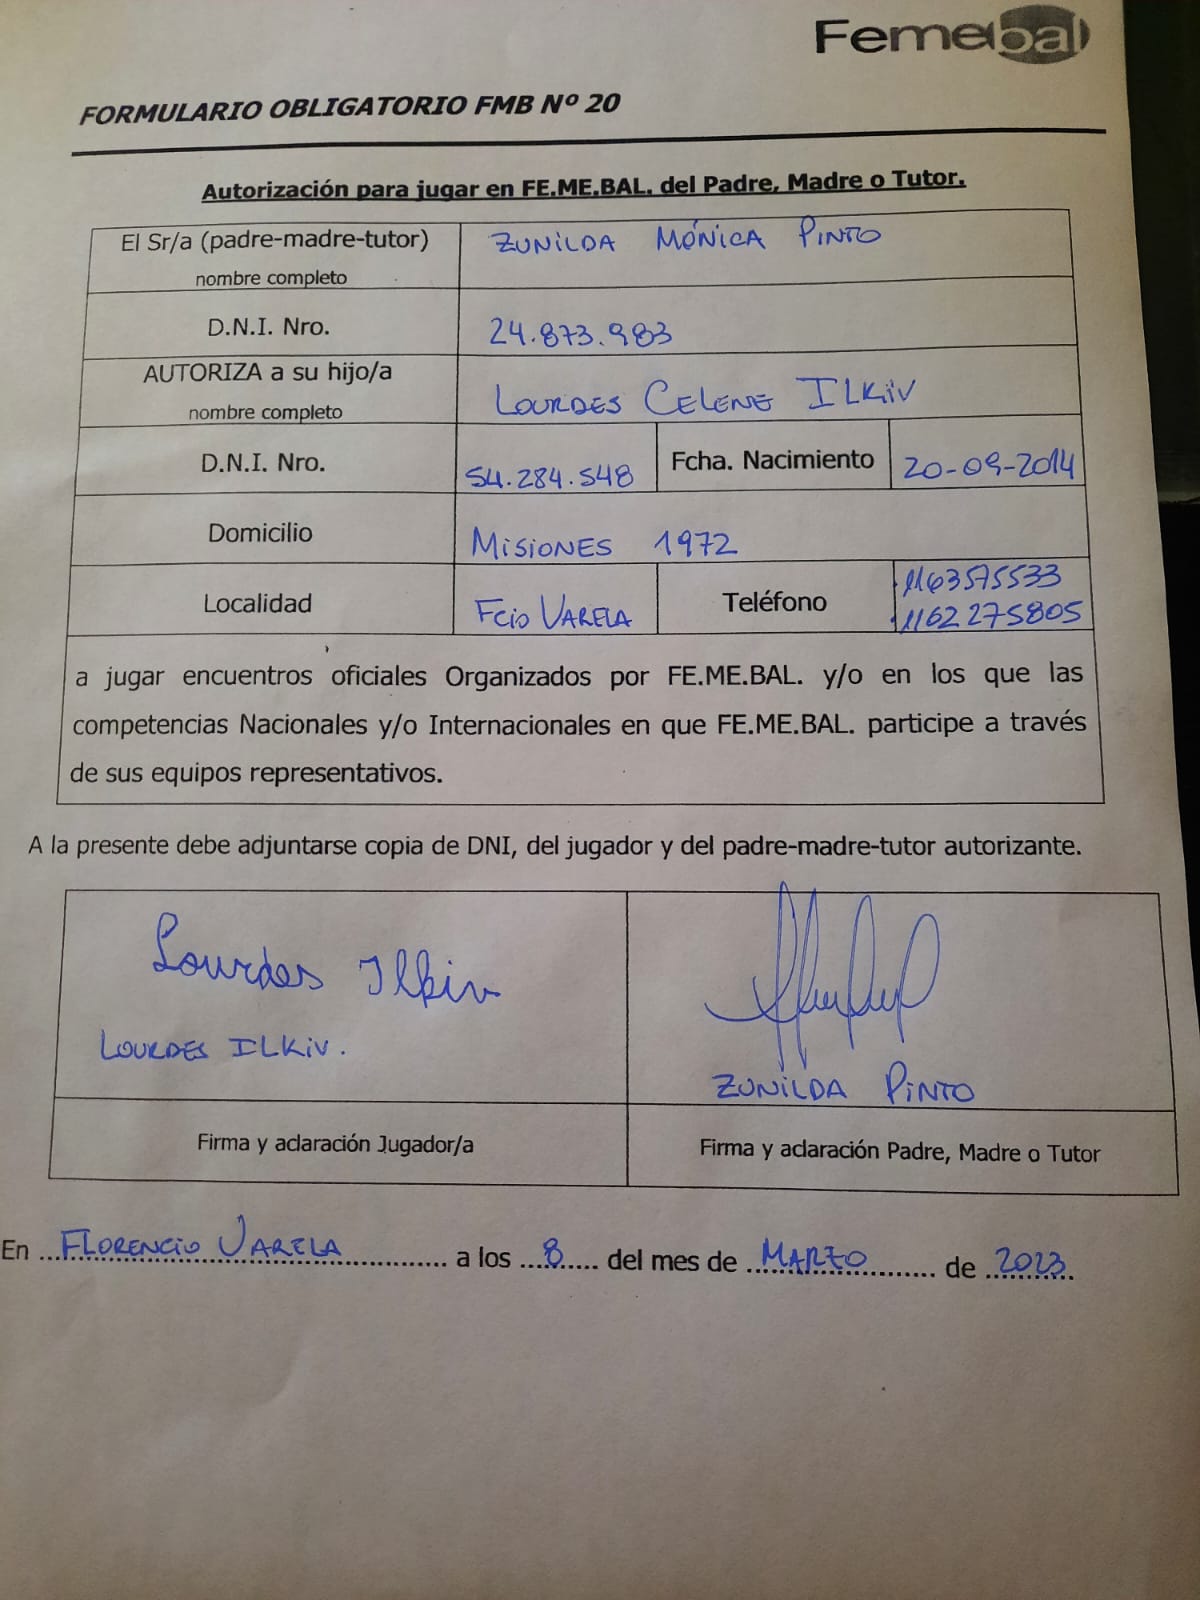 Femebal
FORMULARIO OBLIGATORIO FMB Nº 20
Autorización para jugar en FE.ME.BAL. del Padre, Madre o Tutor.
El Sr/a (padre-madre-tutor) ZUNILDA MÓNICA PINTO
nombre completo
D.N.I. Nro. 24.873.983
AUTORIZA a su hijo/a
nombre completo LOURDES CELENE ILKIV
D.N.I. Nro. 54.284.548 Fcha. Nacimiento 20-09-2014
Domicilio MISIONES 1972
Localidad FCIO VARELA Teléfono 1163575533
1162275805
a jugar encuentros oficiales Organizados por FE.ME.BAL. y/o en los que las
competencias Nacionales y/o Internacionales en que FE.ME.BAL. participe a través
de sus equipos representativos.
A la presente debe adjuntarse copia de DNI, del jugador y del padre-madre-tutor autorizante.
Lourdes Ilkiv
LOURDES ILKIV.
ZUNILDA PINTO
Firma y aclaración Jugador/a
Firma y aclaración Padre, Madre o Tutor
En FLORENCIO VARELA a los 8 del mes de MARZO de 2023